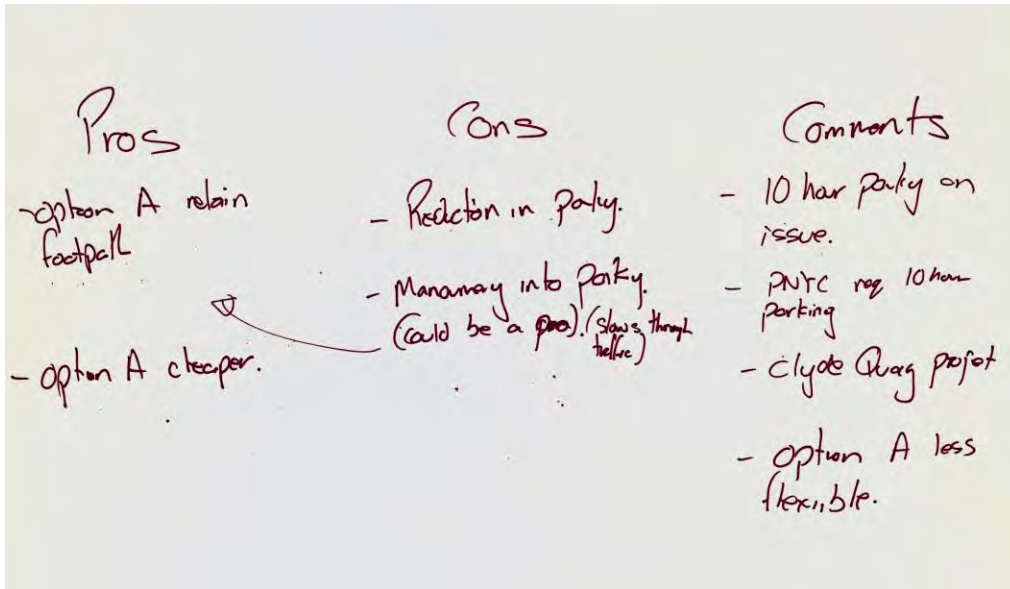 Pros
- option A retain
footpath
- option A cheaper.
Cons
- Reduction in
-
into
(could be a pro). (slows through
traffic)
Comments
- 10 hour on
issue.
- req 10 hour
parking
- Clyde Quay project
- option A less
flexible.